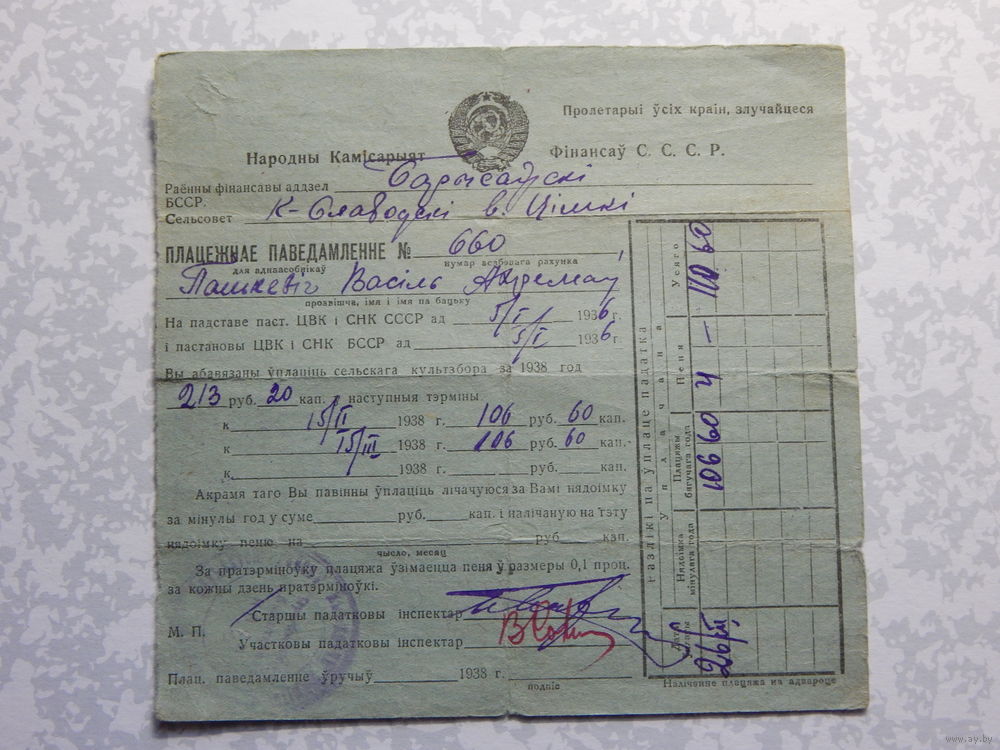 Пролетарыі ўсіх краін, злучайцеся
Народны Камісарыят Фінансаў С. С. С. Р.
Раённы фінансавы аддзел Барысаўскі
БССР.
Сельсовет К-Слабодскі в. Цімкі
ПЛАЦЕЖНАЕ ПАВЕДАМЛЕННЕ № 660
для аднаасобнікаў нумар асабовага рахунка
Пашкевіч Васіль
прозвішча, імя і імя па бацьку
На падставе паст. ЦВК і СНК СССР ад 5/I 1936 г.
і пастановы ЦВК і СНК БССР ад 5/I 1936 г.
Вы абавязаны ўплаціць сельскага культзбора за 1938 год
213 руб. 20 кап. у наступныя тэрміны
к 15/II 1938 г. 106 руб. 60 кап.
к 15/III 1938 г. 106 руб. 60 кап.
к 1938 г. руб. кап.
Акрамя таго Вы павінны ўплаціць лічачуюся за Вамі нядоімку
за мінулы год у суме руб. кап. і налічаную на гэту
нядоімку пеню на руб. кап.
чысло, месяц
За пратэрміноўку плацяжа ўзімаецца пеня ў размеры 0,1 проц.
за кожны дзень пратэрміноўкі.
Старшы падатковы інспектар
М. П.
Участковы падатковы інспектар
Плац. паведамленне ўручыў 1938 г.
подпіс
Разлікі па ўплаце падатка
Уплачана
Усяго 110 60
Пеня 4 —
Плацяжы бягучага года 106 60
Нядоімка мінулага года
Дата ўплаты 26/III
Налічэнне плацяжа на адвароце
www.ay.by